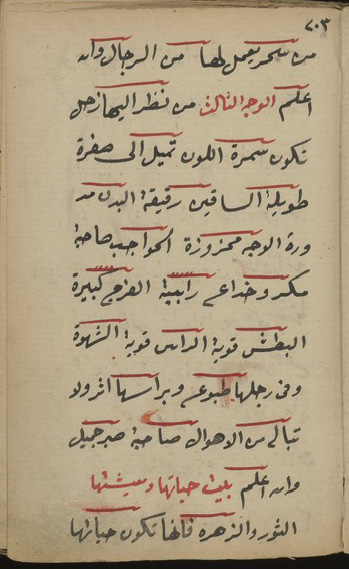 ٧٠٣
من سحر يعمل لها من الرجال وان
اعلم الوجه الثالث من نظر اليها زحل
تكون سمرة اللون تميل الى صفرة
طويلة الساقين رقيقة البدن مد
ورة الوجه محزوزة الحواجب صاحبة
مكر وخداع رابية الفرج كبيرة
البطش قوية الراس قوية الشهوة
وفى رجلها طبوع وبراسها اثر ولا
تبالى من الاهوال صاحبة صبر جميل
وان اعلم بيت حياتها وعيشتها
الثور والزهره فانها تكون حياتها